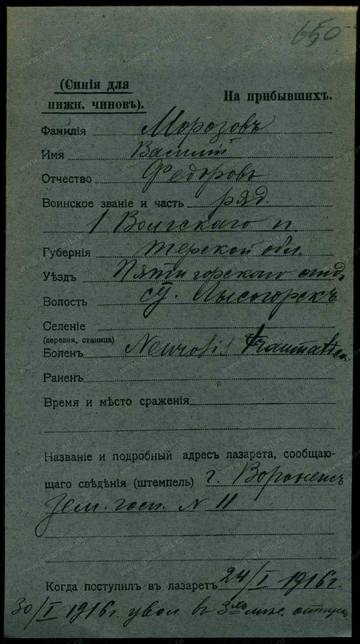 650
(Синія для
нижн. чиновъ).
На прибывшихъ.
Фамилія Морозовъ
Имя Василій
Отчество Федоровъ
Воинское званіе и часть ряд.
1 Волгскаго п.
Губернія Терской обл.
Уѣздъ Пятигорскаго отд.
Волость ст. Лысогорскъ
Селеніе
(деревня, станица)
Боленъ Neurosis traumatica
Раненъ
Время и мѣсто сраженія
Названіе и подробный адресъ лазарета, сообщаю-
щаго свѣдѣнія (штемпель) г. Воронежъ
Зем. госп. N 11
Когда поступилъ въ лазаретъ 24/I 1916г.
30/I 1916г. увол. в 3хъ мѣс. отпускъ